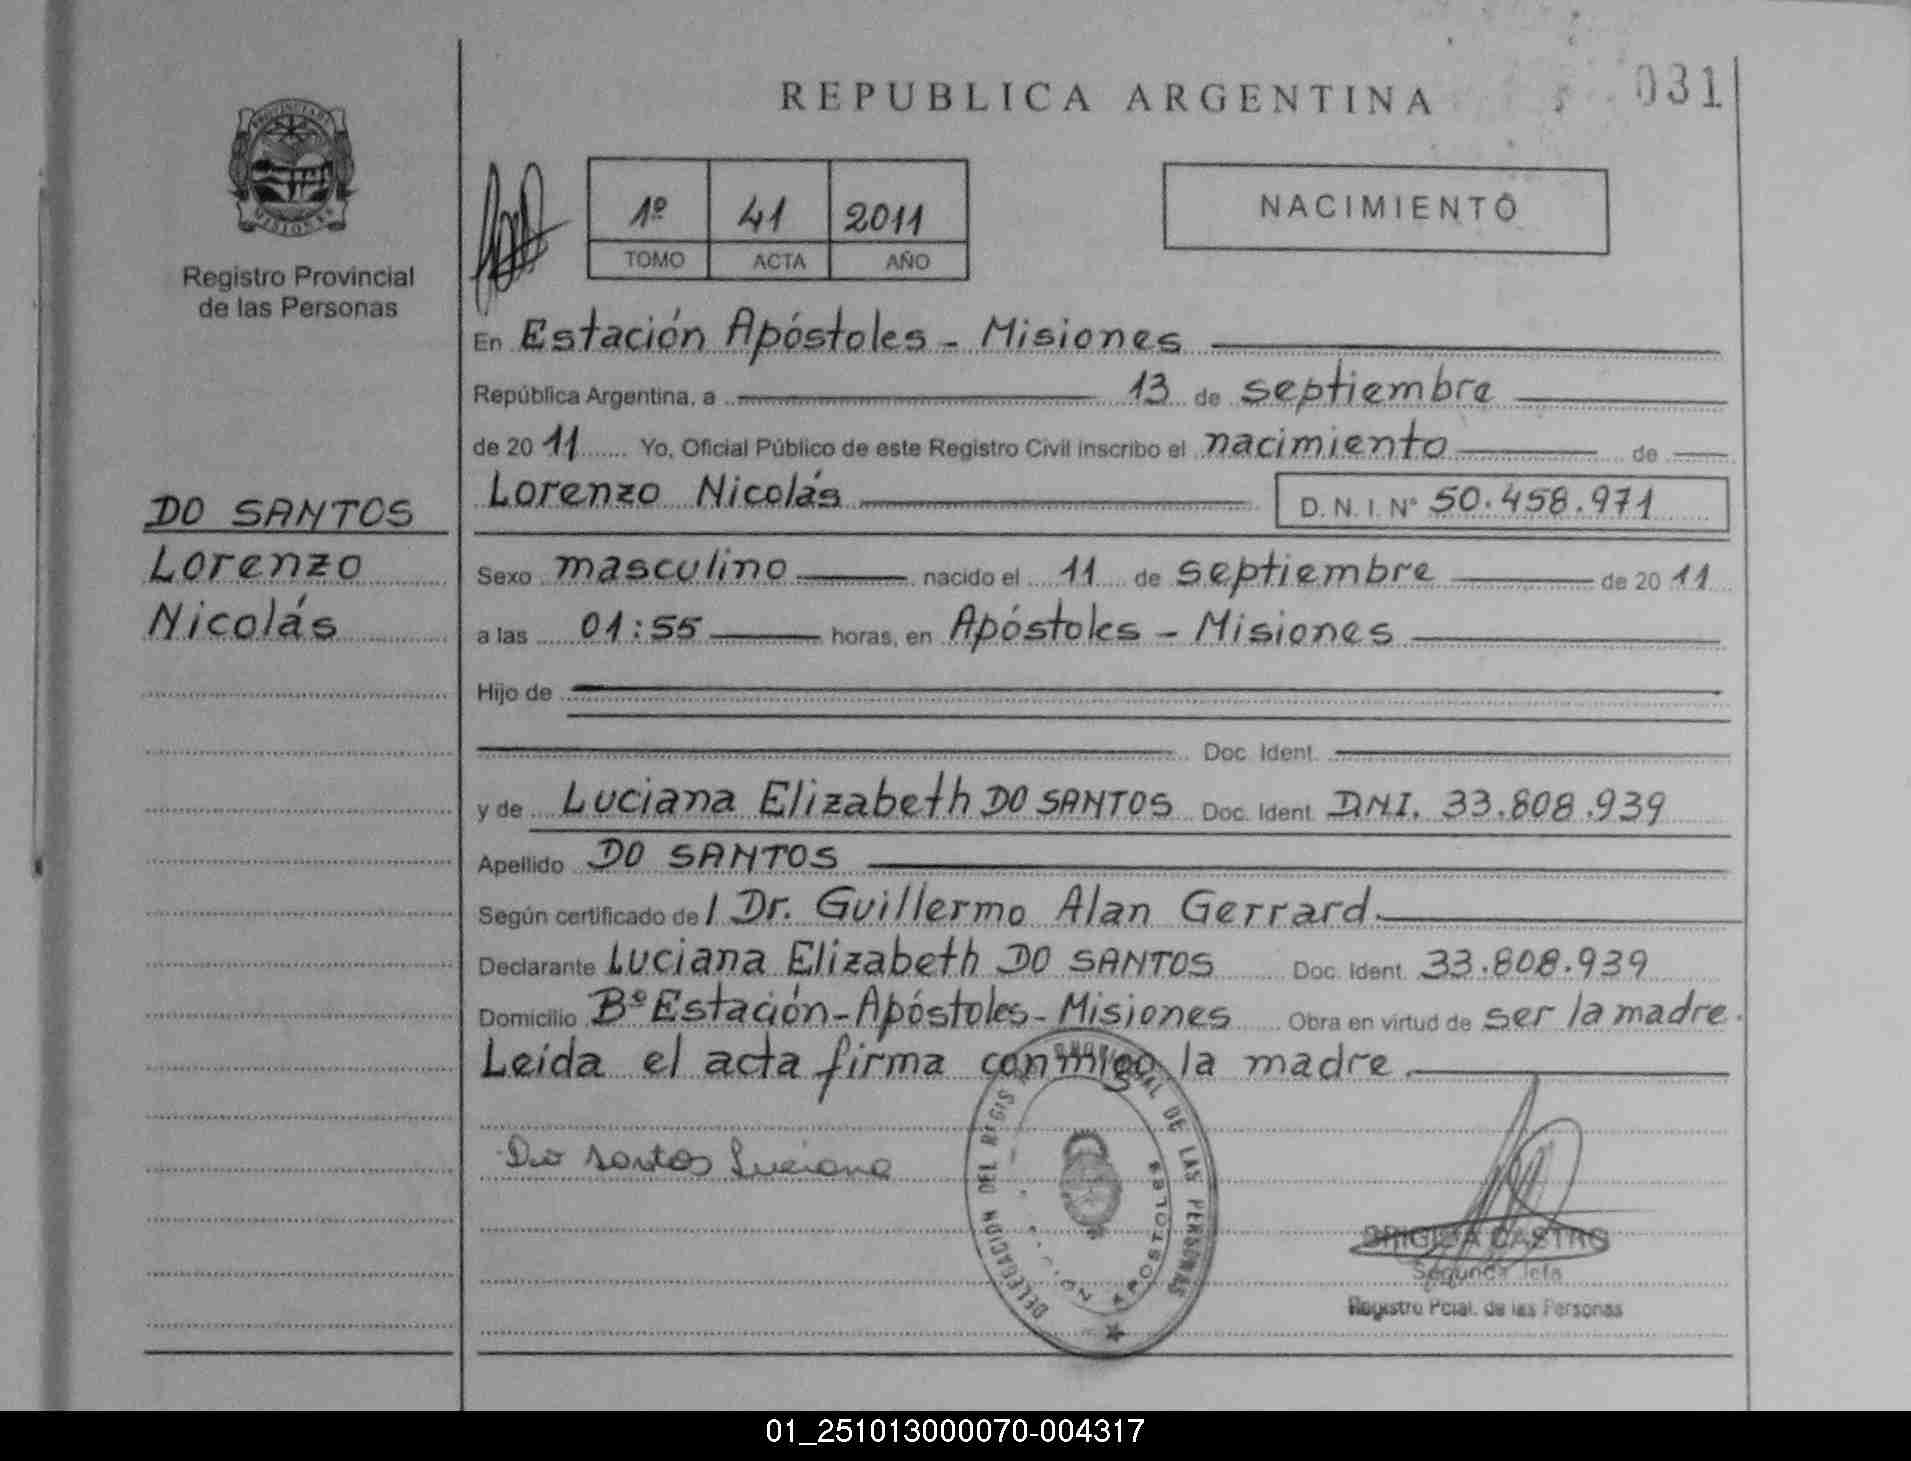 REPUBLICA ARGENTINA
031
PROVINCIA DE
MISIONES
Registro Provincial
de las Personas
1º 41 2011
TOMO ACTA AÑO
NACIMIENTO
En Estación Apóstoles - Misiones
República Argentina, a 13 de septiembre
de 20 11 Yo, Oficial Público de este Registro Civil inscribo el nacimiento de
Lorenzo Nicolás D. N. I. Nº 50.458.971
DO SANTOS
Lorenzo
Nicolás
Sexo masculino nacido el 11 de septiembre de 20 11
a las 01:55 horas, en Apóstoles - Misiones
Hijo de
Doc. Ident.
y de Luciana Elizabeth DO SANTOS Doc. Ident. DNI. 33.808.939
Apellido DO SANTOS
Según certificado de / Dr. Guillermo Alan Gerrard.
Declarante Luciana Elizabeth DO SANTOS Doc. Ident. 33.808.939
Domicilio Bº Estación - Apóstoles - Misiones Obra en virtud de ser la madre.
Leída el acta firma conmigo la madre
Do Santos Luciana
DELEGACION DEL REGIS AL DE LAS PERSONAS
APOSTOLES
BRIGIDA CASTRO
Segunda Jefa
Registro Pcial. de las Personas
01_251013000070-004317